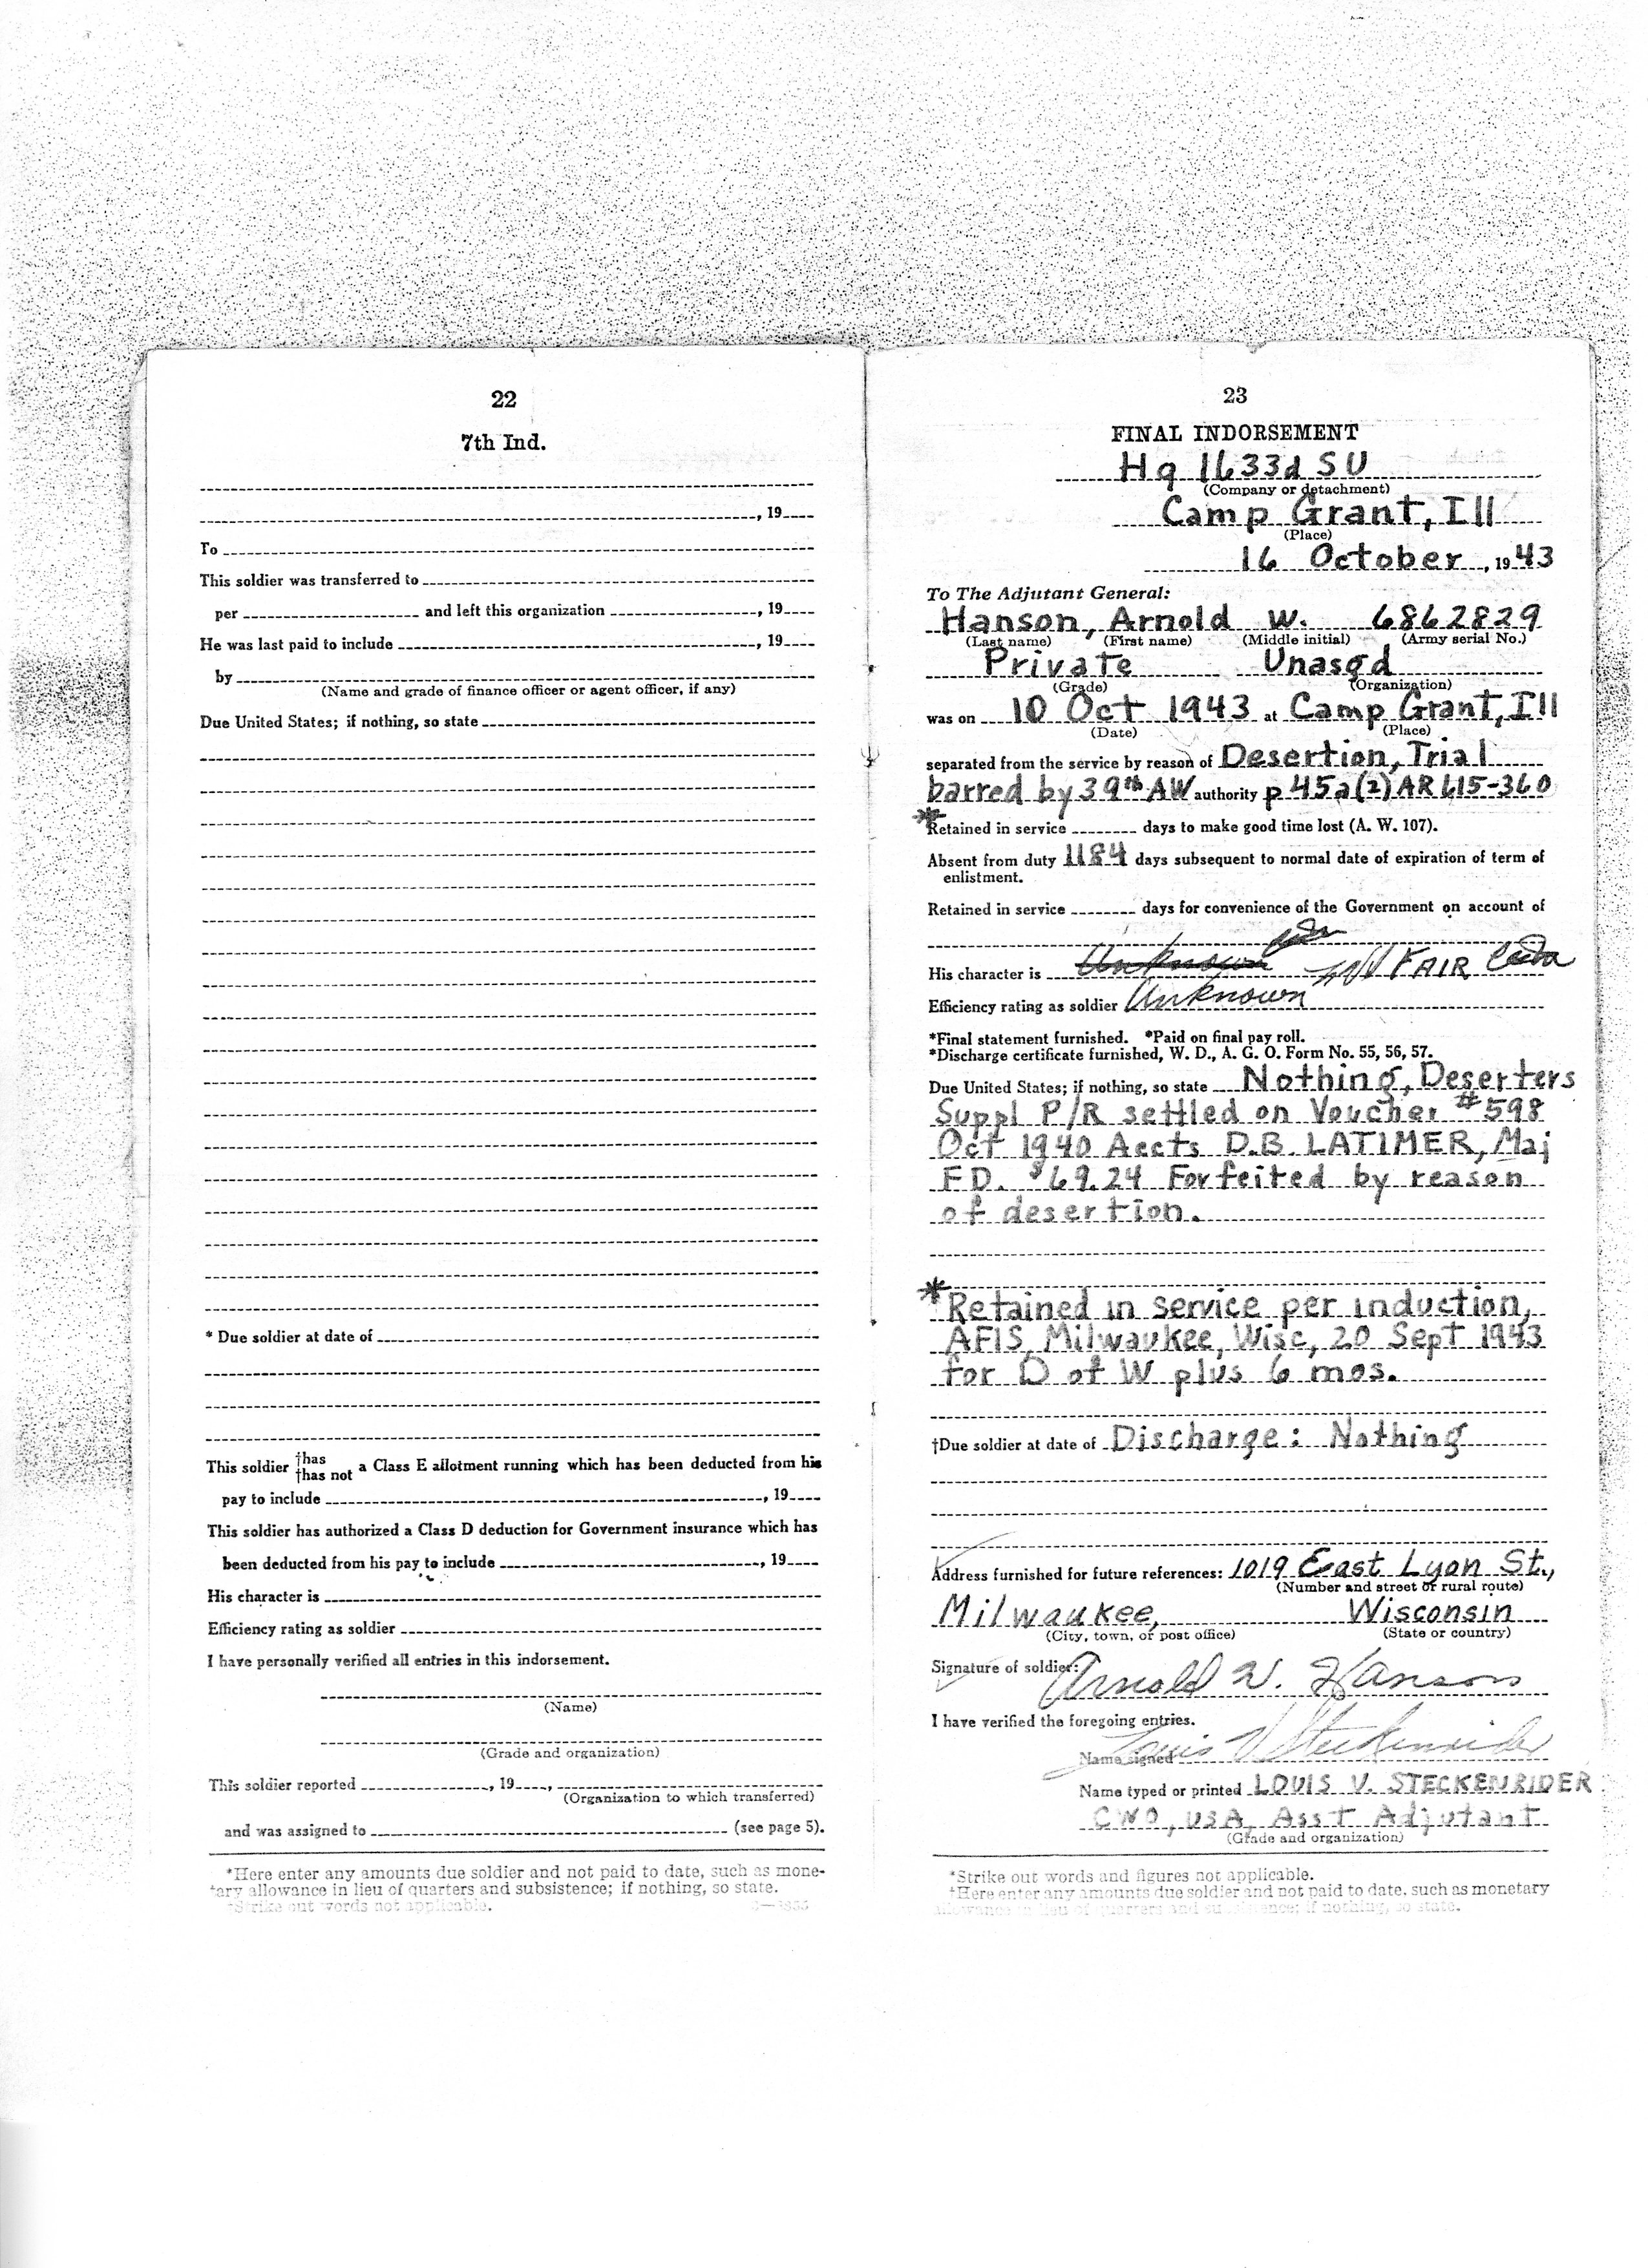 22
7th Ind.
, 19
To
This soldier was transferred to
per and left this organization , 19
He was last paid to include , 19
by
(Name and grade of finance officer or agent officer, if any)
Due United States; if nothing, so state
* Due soldier at date of
This soldier †has †has not a Class E allotment running which has been deducted from his
pay to include , 19
This soldier has authorized a Class D deduction for Government insurance which has
been deducted from his pay to include , 19
His character is
Efficiency rating as soldier
I have personally verified all entries in this indorsement.
(Name)
(Grade and organization)
This soldier reported , 19 ,
(Organization to which transferred)
and was assigned to (see page 5).
*Here enter any amounts due soldier and not paid to date, such as mone-
tary allowance in lieu of quarters and subsistence; if nothing, so state.
†Strike out words not applicable.
23
FINAL INDORSEMENT
Hq 1633d SU
(Company or detachment)
Camp Grant, Ill
(Place)
16 October , 1943
To The Adjutant General:
Hanson, Arnold W. 6862829
(Last name) (First name) (Middle initial) (Army serial No.)
Private Unasgd
(Grade) (Organization)
was on 10 Oct 1943 at Camp Grant, Ill
(Date) (Place)
separated from the service by reason of Desertion, Trial
barred by 39th AW authority p 45a(2) AR 615-360
*Retained in service days to make good time lost (A. W. 107).
Absent from duty 1184 days subsequent to normal date of expiration of term of
enlistment.
Retained in service days for convenience of the Government on account of
His character is Unknown FAIR
Efficiency rating as soldier Unknown
*Final statement furnished. *Paid on final pay roll.
*Discharge certificate furnished, W. D., A. G. O. Form No. 55, 56, 57.
Due United States; if nothing, so state Nothing, Deserters
Suppl P/R settled on Voucher #598
Oct 1940 Accts D.B. LATIMER, Maj
FD. $69.24 Forfeited by reason
of desertion.
*Retained in service per induction,
AFIS, Milwaukee, Wisc, 20 Sept 1943
for D of W plus 6 mos.
†Due soldier at date of Discharge: Nothing
Address furnished for future references: 1019 East Lyon St.,
(Number and street or rural route)
Milwaukee, Wisconsin
(City, town, or post office) (State or country)
Signature of soldier: Arnold W. Hanson
I have verified the foregoing entries.
Name signed Louis V Steckenrider
Name typed or printed LOUIS V. STECKENRIDER
CWO, USA, Asst Adjutant
(Grade and organization)
*Strike out words and figures not applicable.
†Here enter any amounts due soldier and not paid to date, such as monetary
allowance in lieu of quarters and subsistence; if nothing, so state.